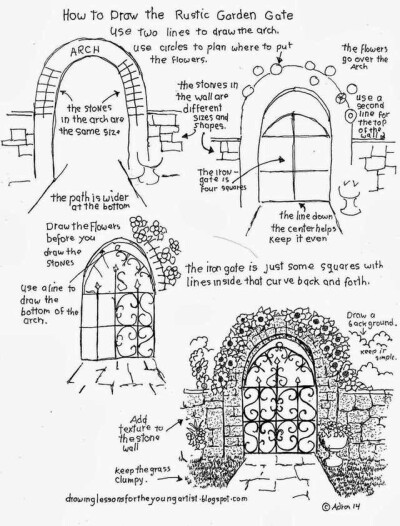 How to Draw the Rustic Garden Gate
Use two lines to draw the arch.
use circles to plan where to put
the flowers.
ARCH
The flowers
go over the
Arch
the stones
in the arch are
the same size
the stones in
the wall are
different
sizes and
shapes.
use a
second
line for
the top
of the
wall
The iron
gate is
four squares
the path is wider
at the bottom
the line down
the center helps
keep it even
Draw the Flowers
before you
draw the
stones
The iron gate is just some squares with
lines inside that curve back and forth.
Use a line to
draw the
bottom of the
arch.
Draw a
background.
keep it
simple.
Add
texture to
the stone
wall
keep the grass
clumpy.
drawinglessonsfortheyoungartist.blogspot.com
© Adron 14